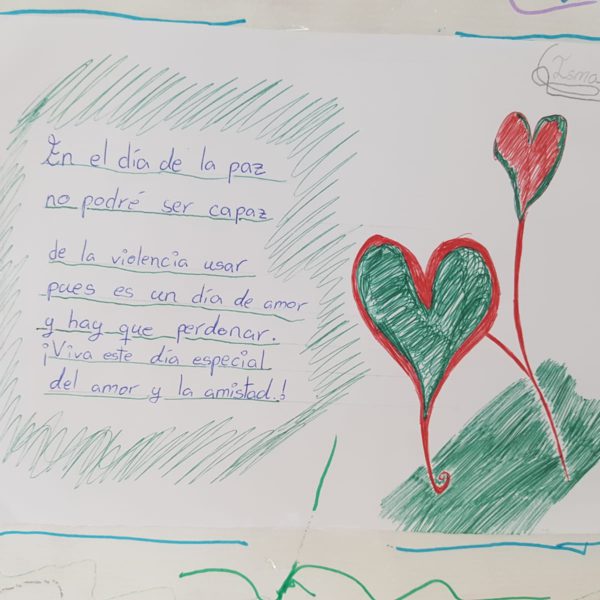 Isma
En el día de la paz
no podré ser capaz
de la violencia usar
pues es un día de amor
y hay que perdonar.
¡Viva este día especial
del amor y la amistad.!